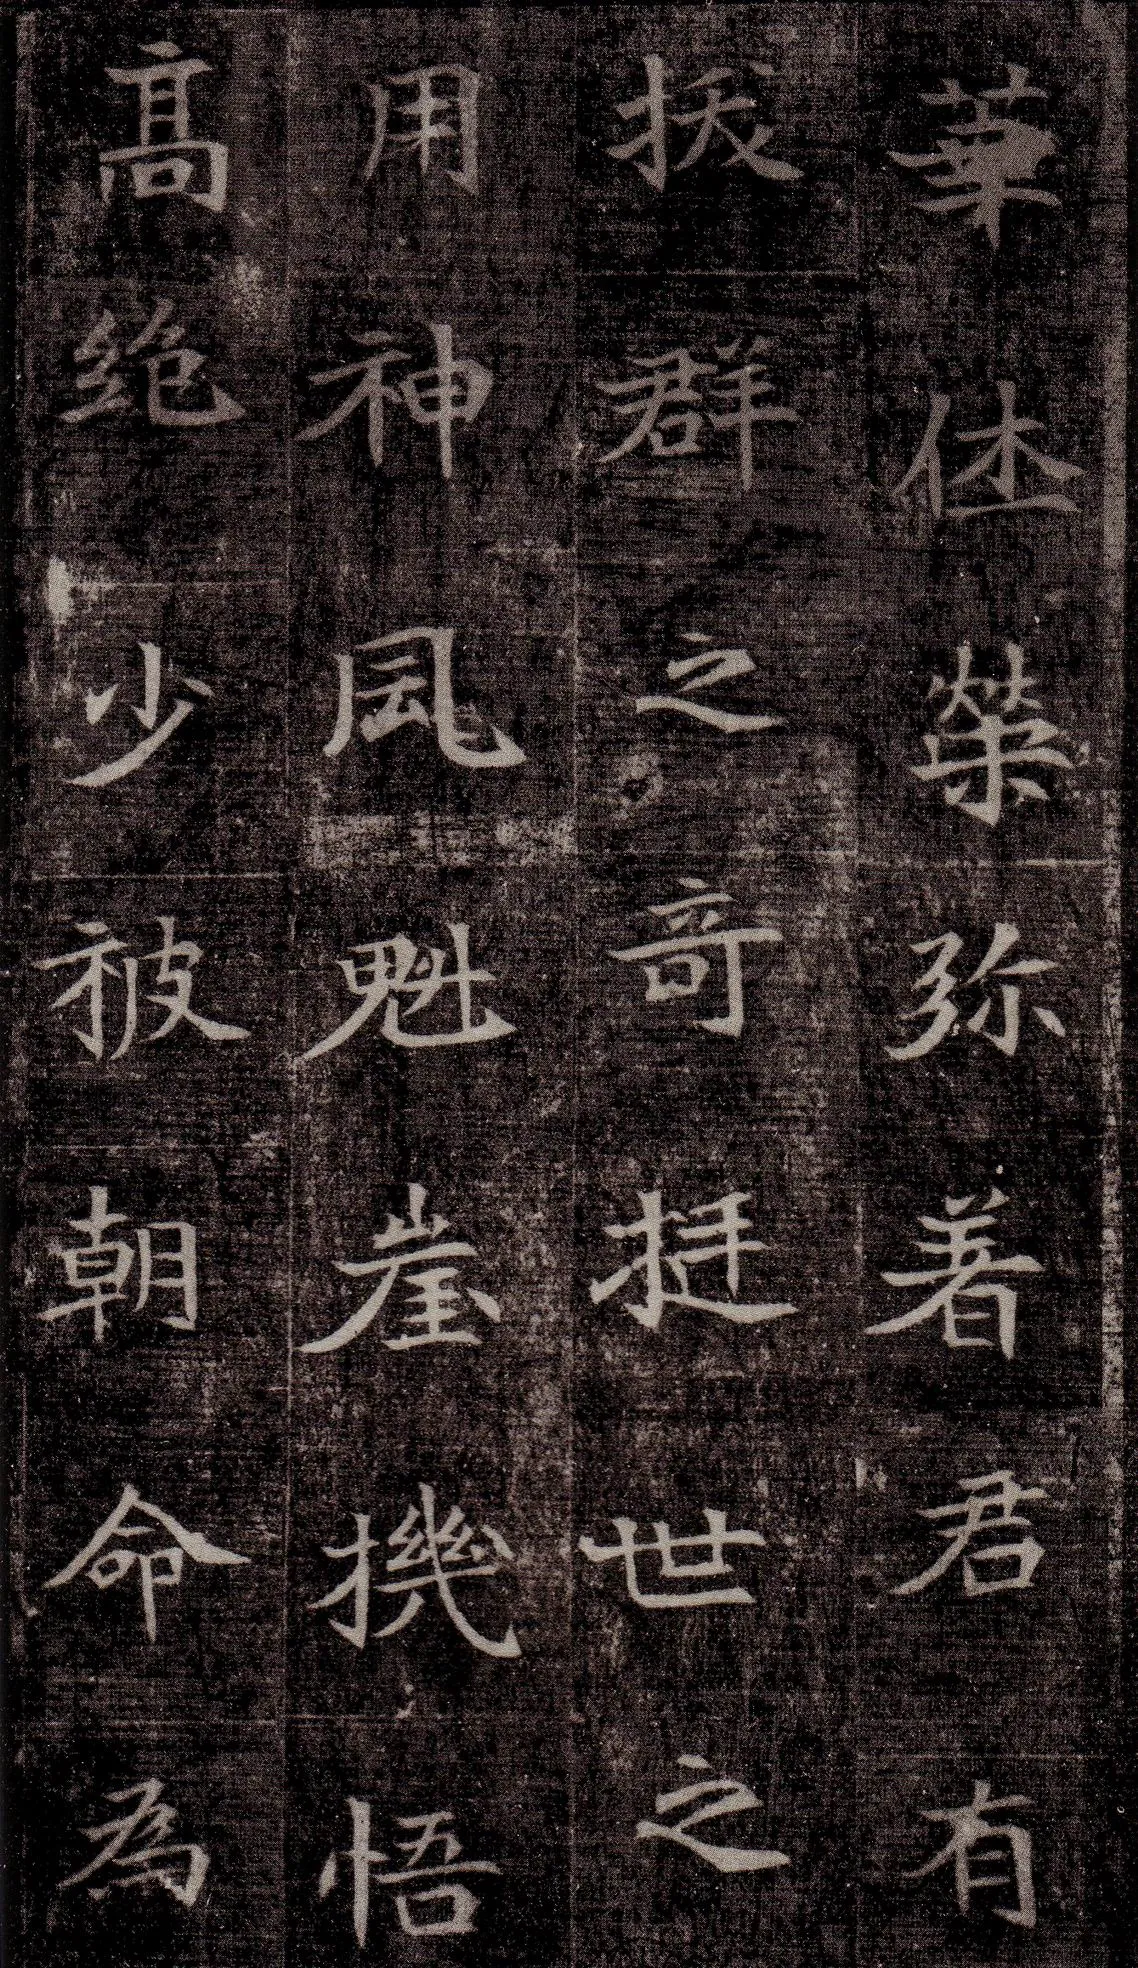 華休榮弥著君有
拔群之竒挺世之
用神風魁崖機悟
髙絶少被朝命為